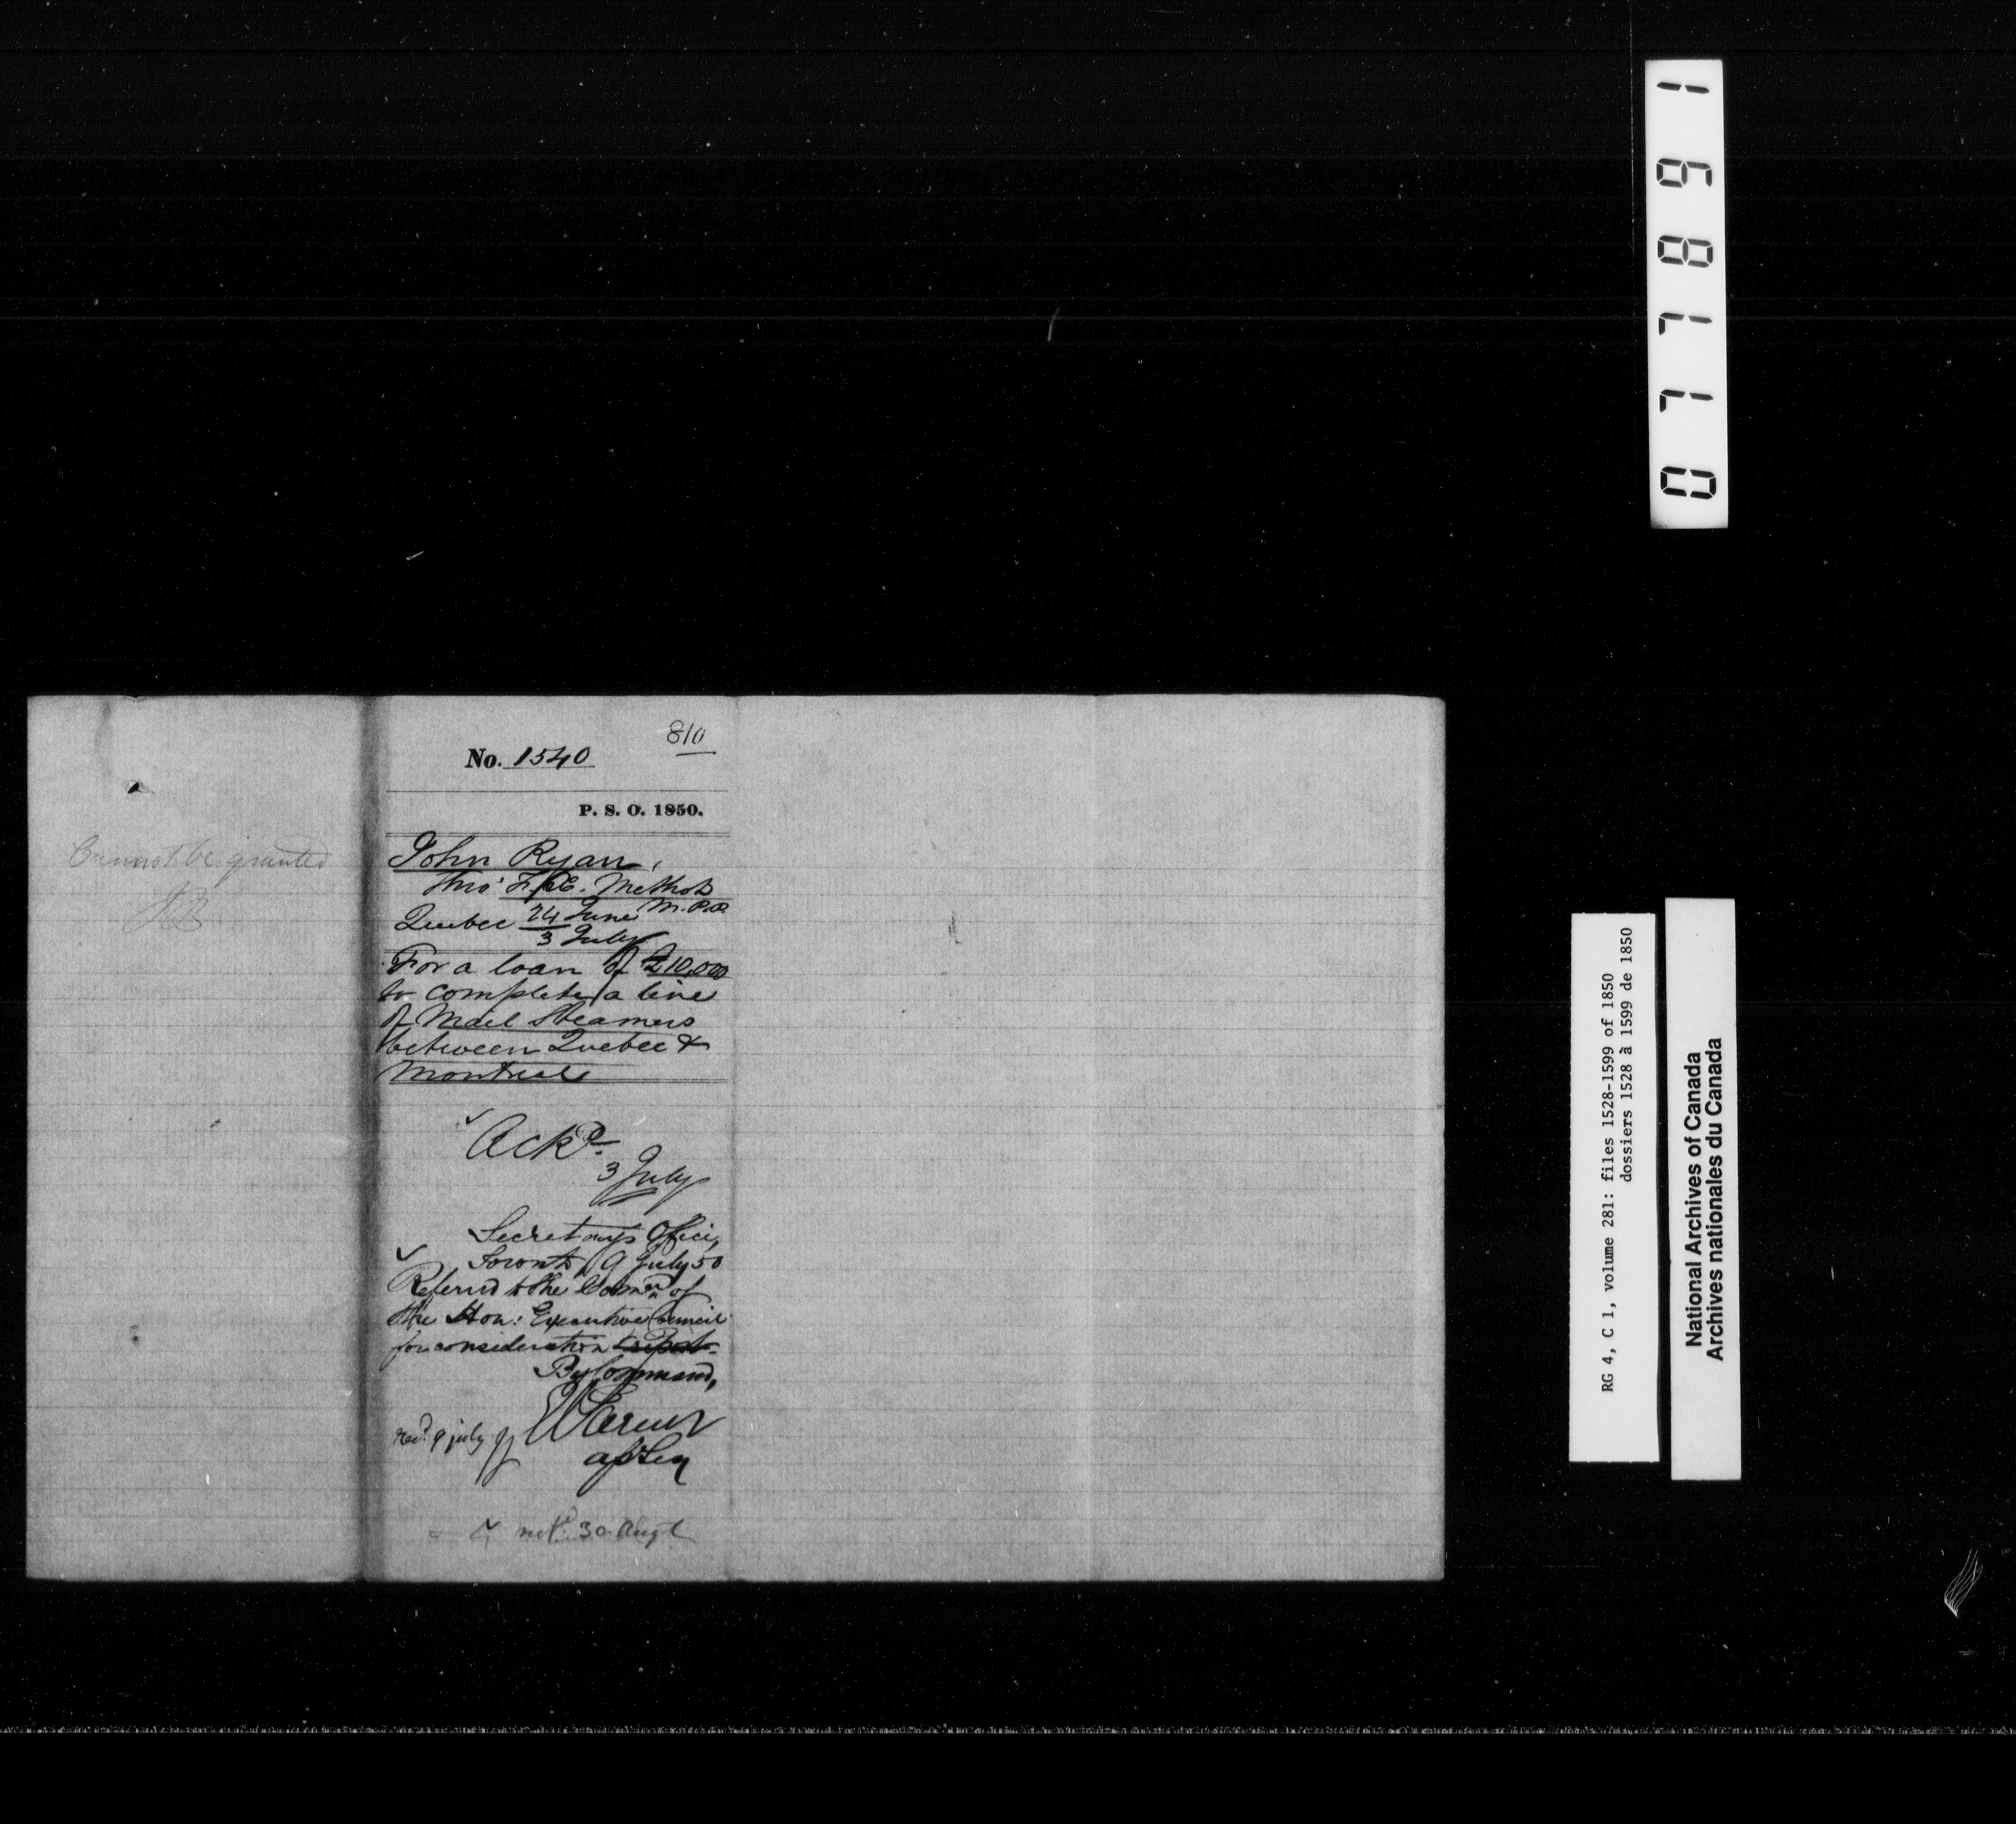 077891
Cannot be granted
810
No. 1540
P. S. O. 1850.
John Ryan,
thro' F. X. Methot
M.P.P.
Quebec 24 June
3 July
For a loan of £10,000
to complete a line
of Mail Steamers
between Quebec &
Montreal
Ackd.
3 July
Secretary's Office,
Toronto, 9 July 50
Referred to the Comee of
the Hon: Executive Council
for consideration & report.
By Command,
Recd. 9 July
E Parent
asst Sey
30 Augt
RG 4, C 1, volume 281: files 1528-1599 of 1850
dossiers 1528 à 1599 de 1850
National Archives of Canada
Archives nationales du Canada